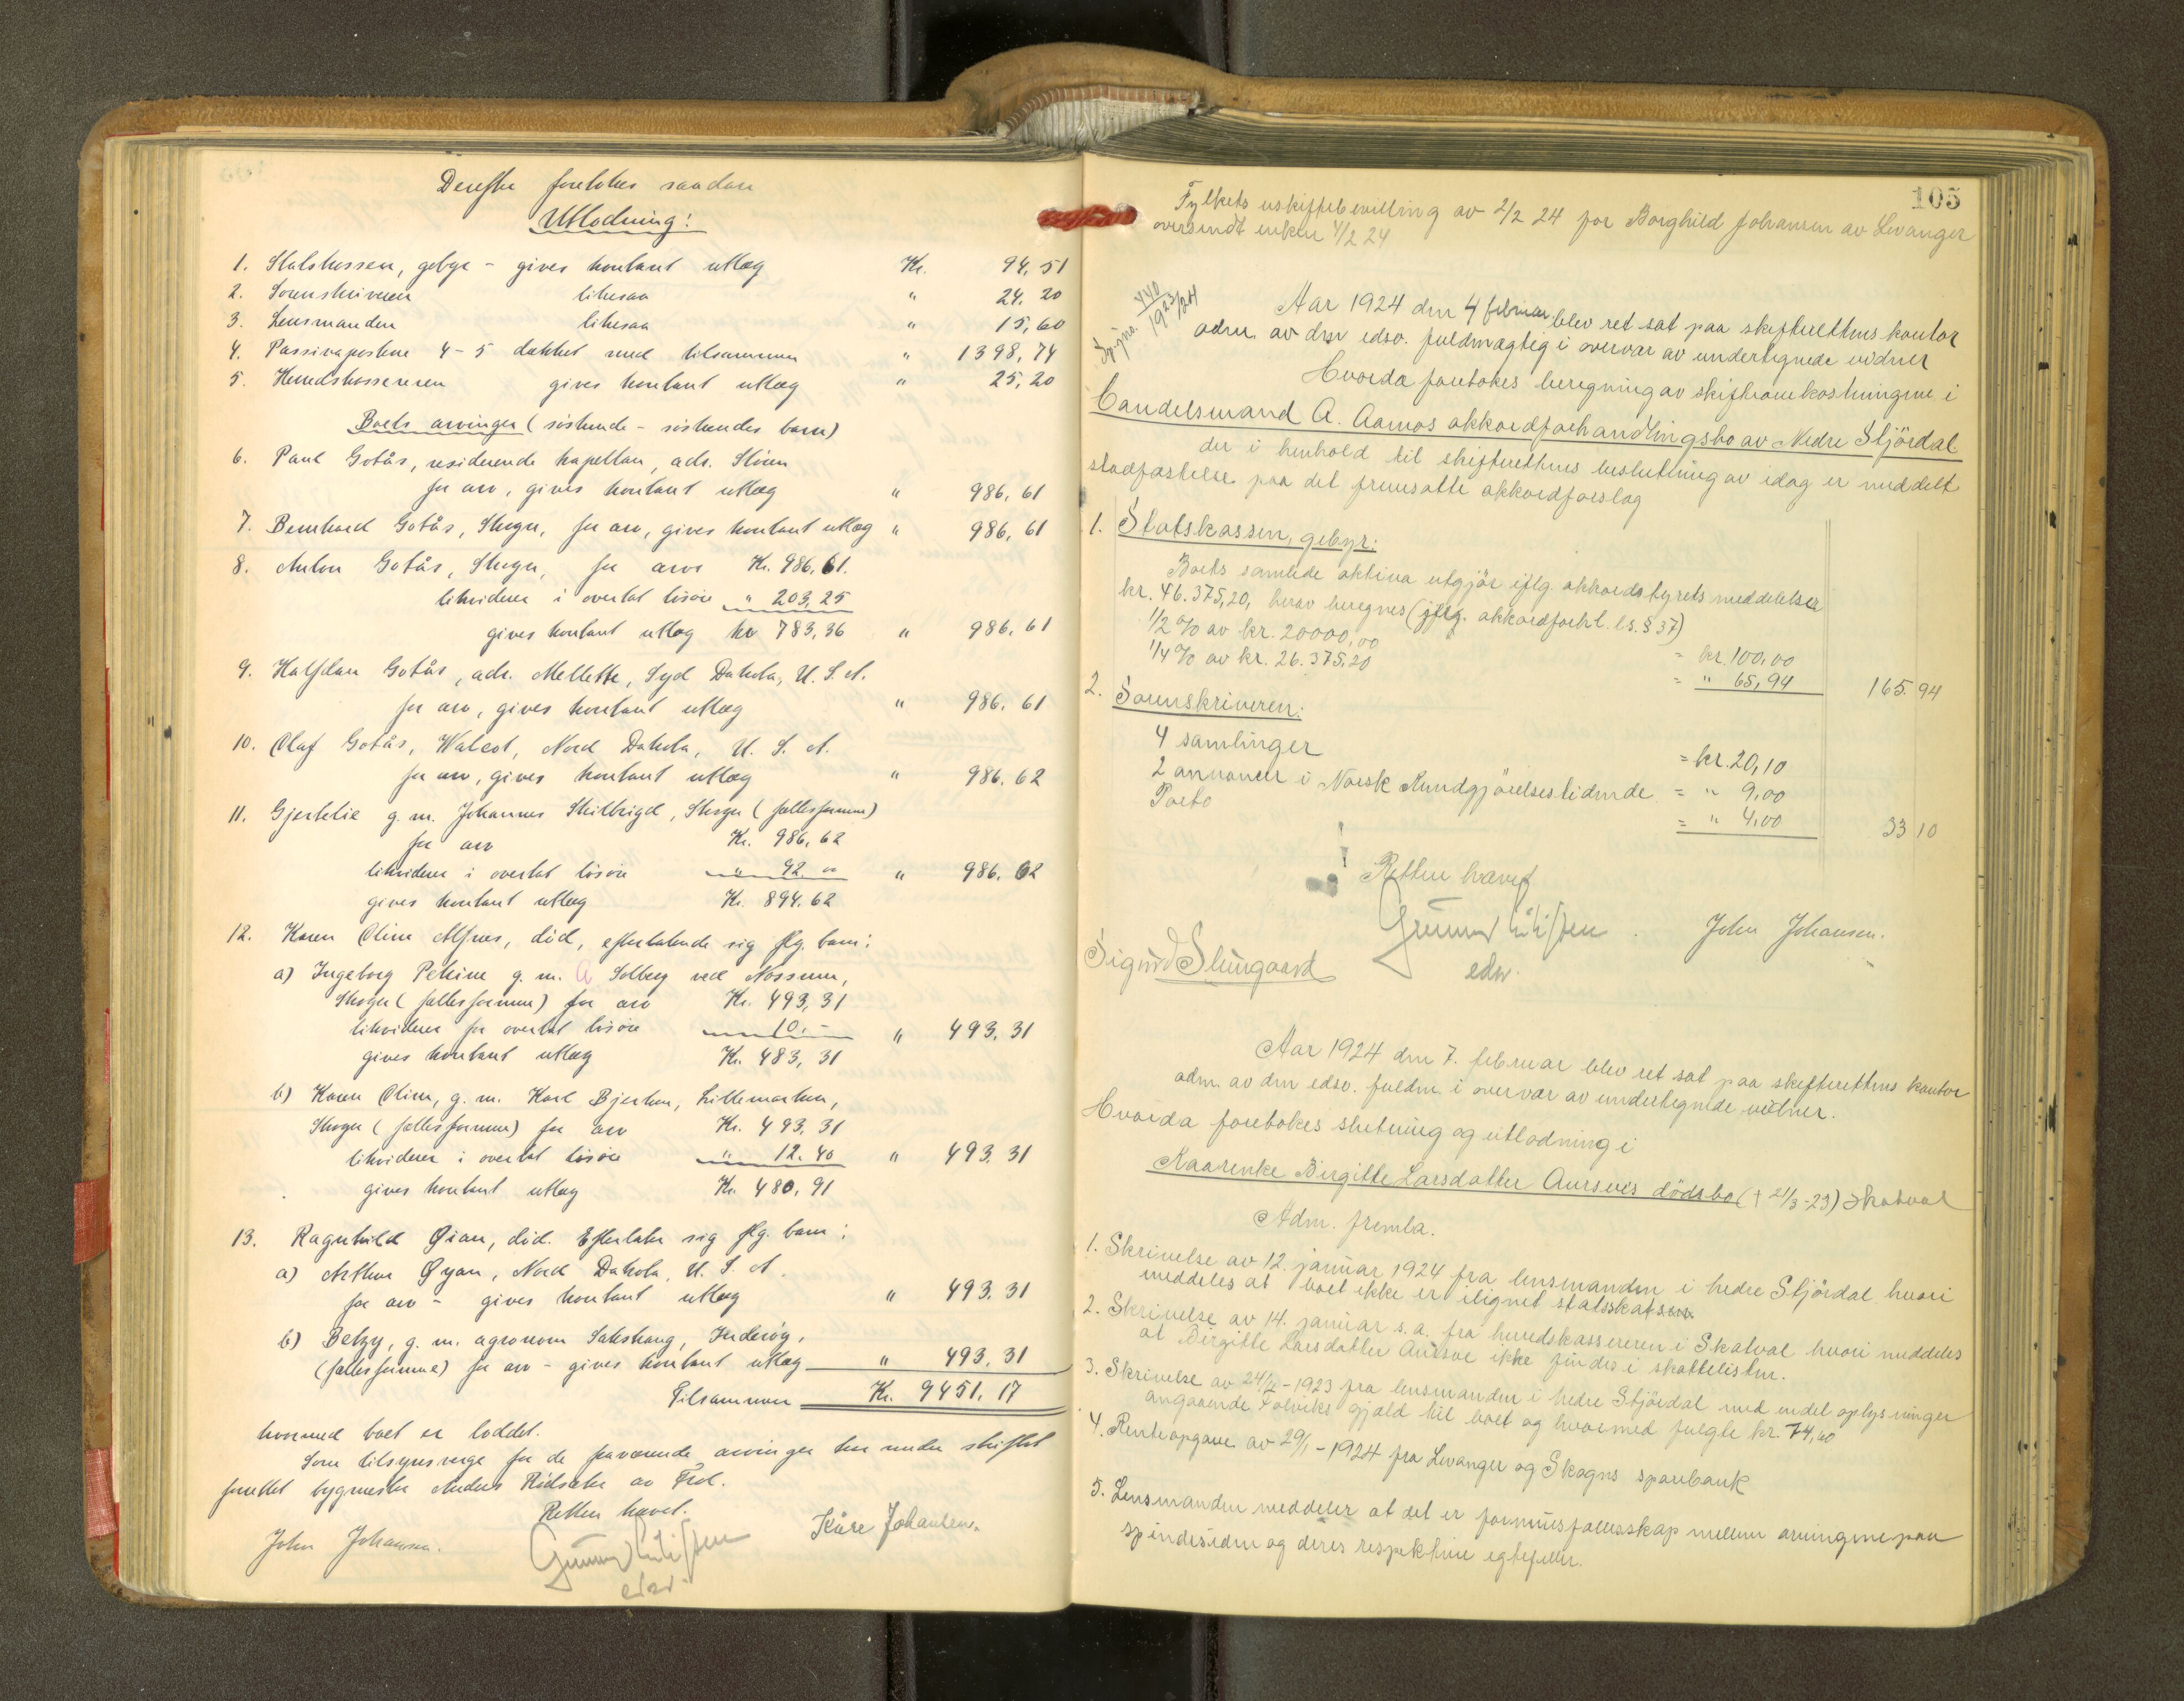 Derefter foretokes saadan
Utlodning:
1. Statskassen, gebyr - gives kontant utlæg Kr. 94,51
2. Sorenskriveren likesaa " 24,20
3. Lensmanden likesaa " 15,60
4. Passivaposterne 4-5 dækket med tilsammen " 1398,74
5. Herredskassereren gives kontant utlæg " 25,20
Boets arvinger (søskende - søskendes barn)
6. Paul Gotås, residerende kapellan, adr.
for arv, gives kontant utlæg " 986,61
7. Bernhard Gotås, Skogn, for arv, gives kontant utlæg " 986,61
8. Anton Gotås, Skogn, for arv Kr. 986,61.
likviderer i overtat løsøre " 203,25
gives kontant utlæg kr 783,36 " 986,61
9. Halfdan Gotås, adr. Mellette, Syd Dakota, U.S.A.
for arv, gives kontant utlæg " 986,61
10. Olaf Gotås, Walcot, Nord Dakota, U.S.A.
for arv, gives kontant utlæg " 986,62
11. Gjertelie g.m. Johannes Skilbrigd, Skogn (fællesformue)
for arv Kr. 986,62
likviderer i overtat løsøre " 92.00 " 986,62
gives kontant utlæg Kr. 894.62
12. Karen Oline Alfnes, död, efterlatende sig flg. barn:
a) Ingeborg Petrine g.m. A Solberg ved Nossum,
Skogn (fællesformue) for arv Kr. 493,31
likviderer for overtat løsøre " 10.- " 493,31
gives kontant utlæg Kr. 483,31
b) Karen Oline, g.m. Karl Bjerken, Lillemarken,
Skogn (fællesformue) for arv Kr. 493,31
likviderer i overtat løsøre " 12.40 " 493.31
gives kontant utlæg Kr. 480,91
13. Ragnhild Øian, död. Efterlater sig flg. barn:
a) Arthur Øyan, Nord Dakota, U.S.A.
for arv - gives kontant utlæg " 493.31
b) Betzy, g.m. agronom Sakshaug, Inderøy,
(fællesformue) for arv - gives kontant utlæg " 493,31
Tilsammen Kr. 9451,17
hvormed boet er loddet.
Som tilsynsverge for de fraværende arvinger har under skiftet
bygmester Anders av
Retten hævet.
John Johansen. Kåre Johansen.
edsv.
105
Fylkets uskiftebevilling av 2/2 24 for Borghild Johansen av Levanger
oversendt enken 4/2 24
440
1923/24
Aar 1924 den 4 februar blev ret sat paa skifterettens kontor
adm. av den edsv. fuldmægtig i overvær av undertegnede vidner
Hvorda foretokes beregning av skifteomkostningene i
Handelsmand A. Aamos akkordforhandlingsbo av Nedre Stjördal
der i henhold til skifterettens beslutning av idag er meddelt
stadfæstelse paa det fremsatte akkordforslag
1. Statskassen, gebyr:
Boets samlede aktiva utgjör iflg. akkordstyrets meddelelser
kr. 46.375,20, herav beregnes (jflg. akkordforhl. ls. § 37)
1/2 % av kr. 20000,00 = kr. 100,00
1/4 % av kr. 26.375,20 = " 65,94 165.94
2. Sorenskriveren:
4 samlinger = kr. 20,10
2 annoncer i Norsk Kundgjörelsestidende = " 9,00
Porto = " 4,00 33 10
Retten hævet
John Johansen.
edsv.
Sigurd Slungaard
Aar 1924 den 7. februar blev ret sat paa skifterettens kontor
adm. av den edsv. fuldm. i overvær av undertegnede vidner.
Hvorda foretokes slutning og utlodning i
Kaarenke Birgitte Larsdatter Aursves dödsbo († 21/3-23) Skatval
Adm. fremla.
1. Skrivelse av 12. januar 1924 fra lensmanden i nedre Stjördal hvori
meddeles at boet ikke er ilignet statsskat
2. Skrivelse av 14. januar s.a. fra herredskassereren i Skatval hvori meddeles
at Birgitte Larsdatter Aursve ikke findes i skattelisten.
3. Skrivelse av 24/ -1923 fra lensmanden i nedre Stjördal med endel oplysninger
angaaende Folviks gjæld til boet og hvormed fulgte kr. 74,40
4. Renteopgave av 29/1-1924 fra Levanger og Skogns sparebank
5. Lensmanden meddeler at det er formuesfællesskap mellem arvingene paa
spindesiden og deres respektive egtefeller.